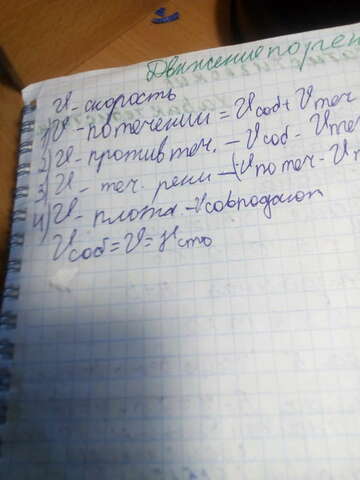 Движение по рек
V - скорость
1) V - по течении = V соб + V теч
2) V - против теч. - V соб - V теч
3) V - теч. реки - (V по теч - V п
4) V - плота - V совпадают
V соб = V =